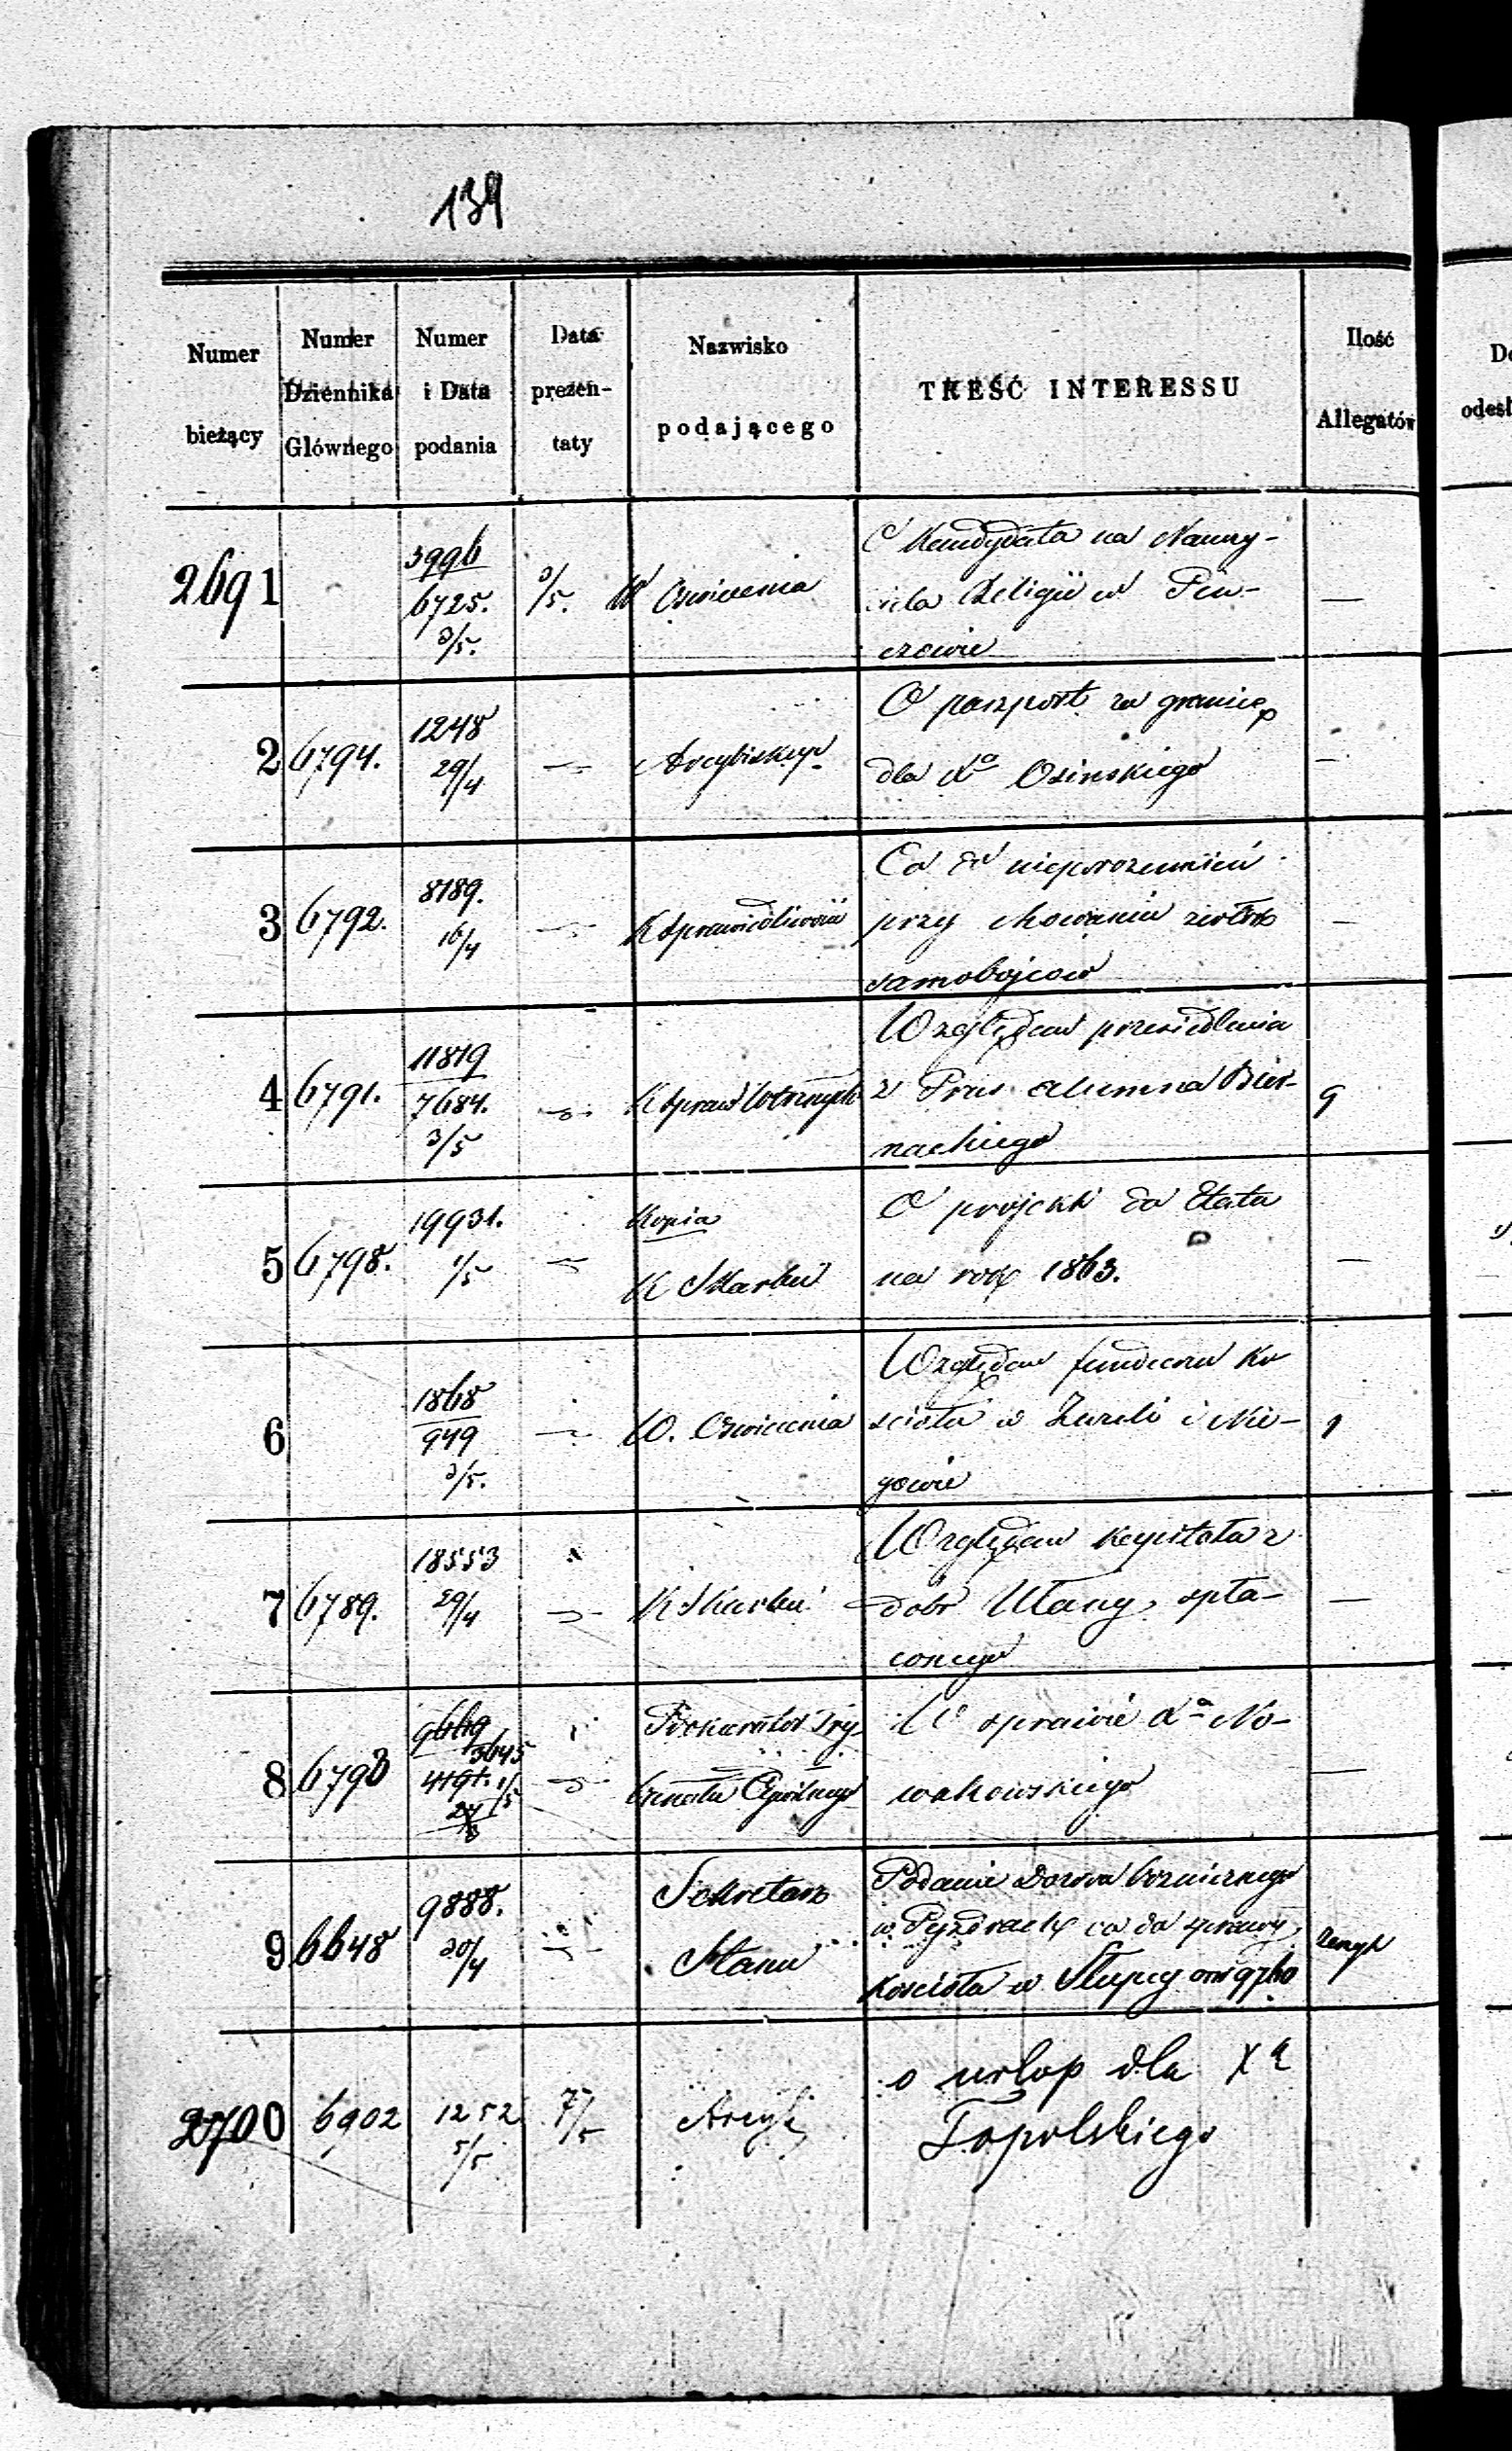 139
Numer bieżący
Numer Dziennika Głównego
Numer i Data podania
Data prezen- taty
Nazwisko podającego
TREŚĆ INTERESSU
Ilość Allegatów
2691
3996
6725.
3/5.
3/5.
W Oswiecenia
O Kandydata na Nauczy-
ciela Religii w Pin-
czowie
—
2
6794.
1248
29/4
Arcybiskup
O paszport za granicę
dla Xa Osinskiego
—
3
6792.
8189.
16/4
K Sprawiedliwości
Co do nieporozumień
przy chowaniu zwłok
samobojcow
—
4
6791.
11819
7684.
3/5
K Spraw Wewnętrznych
Względem przesiedlenia
z Prus alumna Bier-
nackiego
9
5
6798.
19931.
1/5
Kopia
K Skarbu
O projekt do Etatu
na rok 1863.
—
6
1868
949
3/5.
W. Oswiecenia
Względem funduszu Ko
scioła w Żureli i Nie-
gowie
1
7
6789.
18553
29/4
K Skarbu
Względem kapitału z
dobr Ulany spła-
conego
—
8
6793
9669
3645
4191.
1/5
Prokurator Try-
bunału Cywilnego
W sprawie Xa No-
wakowskiego
—
9
6648
9888.
30/4
Sekretarz
Stanu
Podanie Dozoru bozniczego
w Pyzdrach co do sprawy
Koscioła w Słupcy 9760
2700
6902
1252
5/5
7/5
Arcyb
o urlop dla Xa
Topolskiego